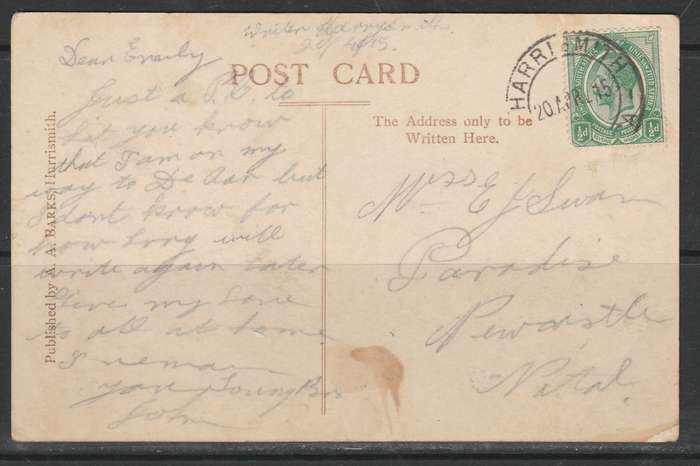 Writer Harrysmith
20/4/15.
Dear Emily
POST CARD
Just a P.C. to
Let you know
that I am on my
way to De Aar but
dont know for
how long will
write again later
Give my love
to all at home
I remain
your loving Bro
Tom
The Address only to be
Written Here.
Miss E J Swan
Paradise
Newcastle
Natal
Published by A. A. BARKS, Harrismith.
HARRISMITH
20 APR 15
½d
½d